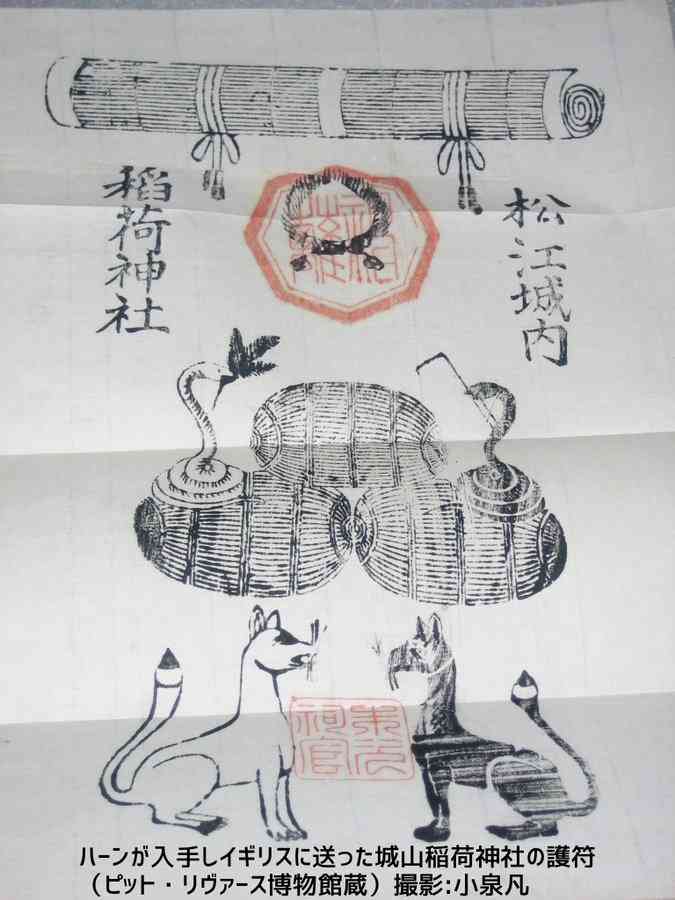 松江城内
稲荷神社
ハーンが入手しイギリスに送った城山稲荷神社の護符
（ピット・リヴァース博物館蔵）撮影:小泉凡